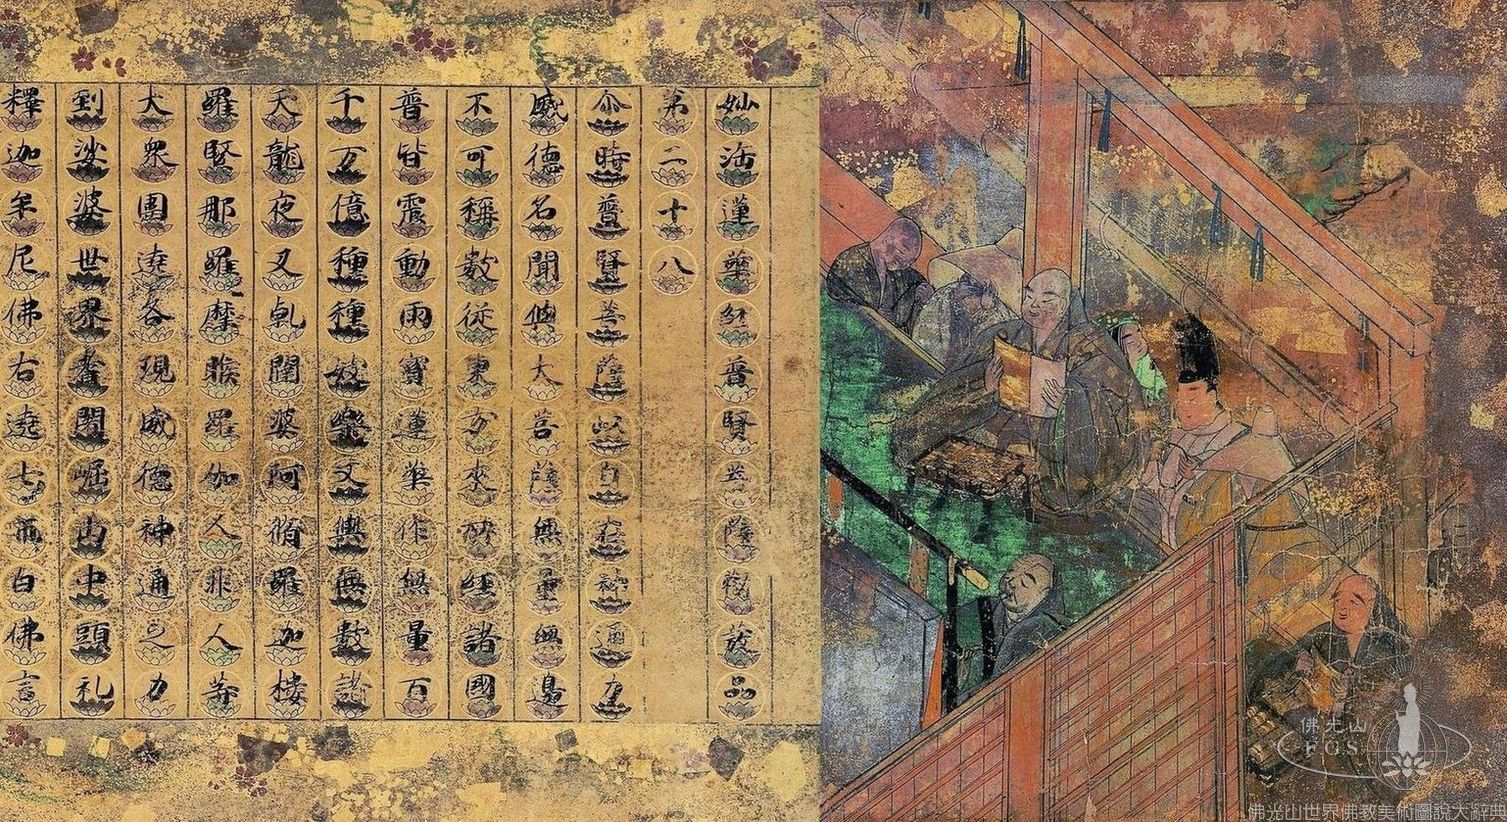 妙法蓮華経普賢菩薩勸發品
第二十八
尒時普賢菩薩以自在神通力
威德名聞與大菩薩無量無邊
不可稱數從東方來所経諸國
普皆震動雨寶蓮華作無量百
千万億種種妓樂又與無數諸
天龍夜叉乹闥婆阿脩羅迦樓
羅緊那羅摩睺羅伽人非人等
大衆圍遶各現威德神通之力
到娑婆世界耆闍崛山中頭礼
釋迦牟尼佛右遶七匝白佛言
佛光山
FGS
佛光山世界佛教美術圖說大辭典